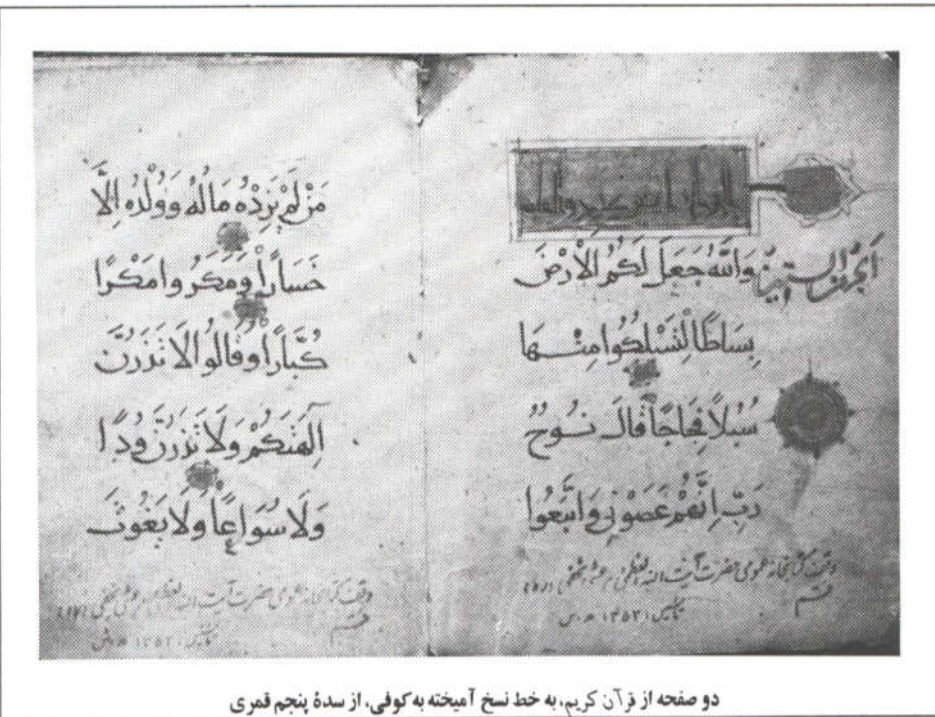 وَاللَّهُ جَعَلَ لَكُمُ الْأَرْضَ
بِسَاطًا لِتَسْلُكُوا مِنْهَا
سُبُلًا فِجَاجًا قَالَ نُوحٌ
رَبِّ اِنَّهُمْ عَصَوْنِي وَاتَّبَعُوا
وقف کتابخانه عمومی حضرت آیت الله العظمی مرعشی نجفی
قم
مَنْ لَمْ يَزِدْهُ مَالُهُ وَوَلَدُهُ اِلَّا
خَسَارًا وَمَكَرُوا مَكْرًا
كُبَّارًا وَقَالُوا لَا تَذَرُنَّ
آلِهَتَكُمْ وَلَا تَذَرُنَّ وَدًّا
وَلَا سُوَاعًا وَلَا يَغُوثَ
وقف کتابخانه عمومی حضرت آیت الله العظمی مرعشی نجفی
قم
دو صفحه از قرآن کریم، به خط نسخ آمیخته به کوفی، از سدهٔ پنجم قمری